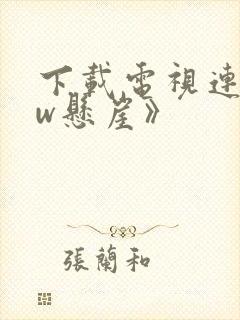 下載電視連
w懸崖》
張蘭和